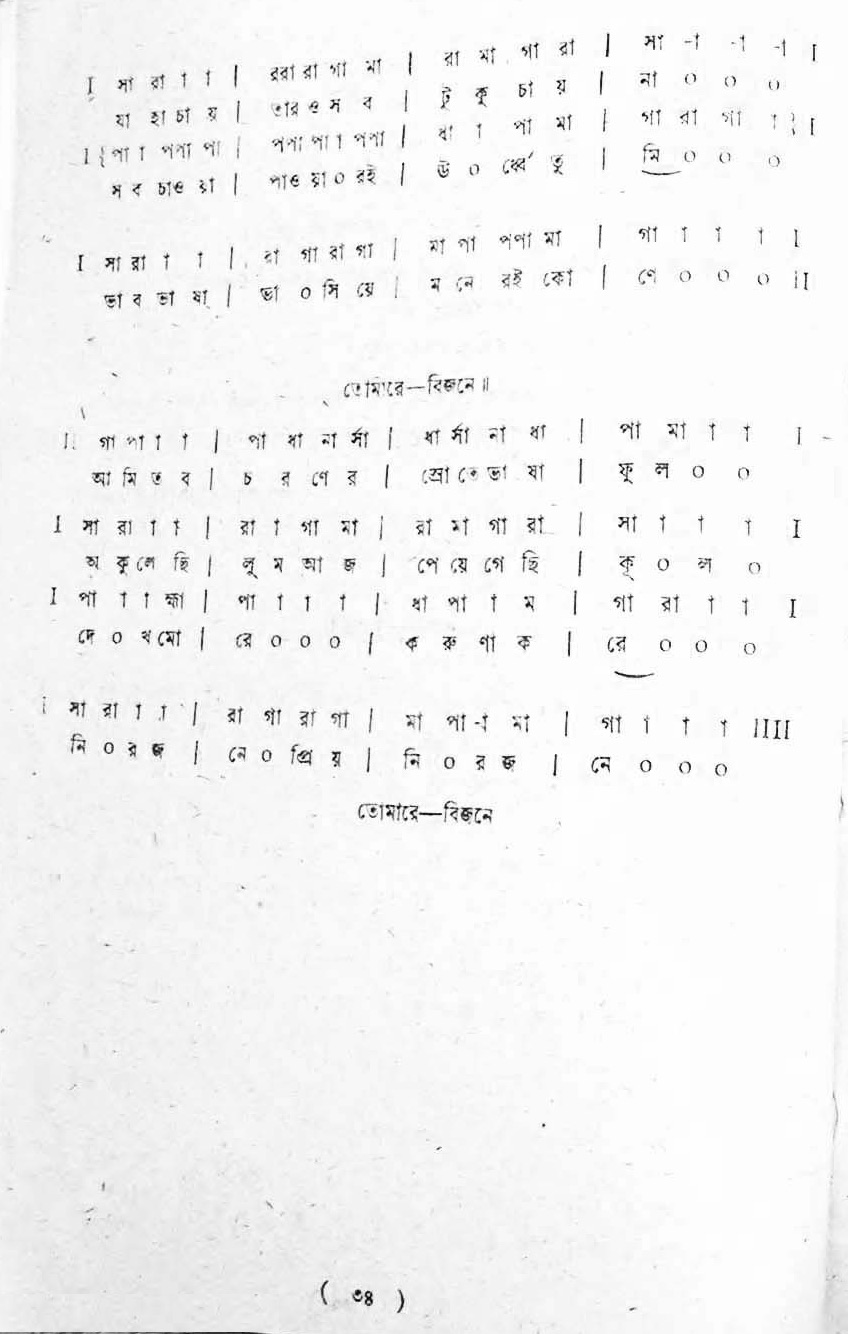 I সা রা া া | ররা রা গা মা | রা মা গা রা | সা -া -া -া I
যা হা চা য় | তার ও স ব | টু কু চা য় | না ০ ০ ০
I {পা া পপা পা | পপা পা া পপা | ধা া পা মা | গা রা গা া} I
স ব চাও য়া | পাও য়া ০ রই | ঊ ০ র্ধ্বে তু | মি ০ ০ ০
I সা রা া া | রা গা রা গা | মা পা পপা মা | গা া া া I
ভা ব ভা ষা | ভা ০ সি য়ে | ম নে রই কো | ণে ০ ০ ০ II
তোমারে—বিজনে॥
II গা পা া া | পা ধা না র্সা | ধা র্সা না ধা | পা মা া া I
আ মি ত ব | চ র ণে র | স্রো তে ভা ষা | ফু ল ০ ০
I সা রা া া | রা া গা মা | রা মা গা রা | সা া া া I
অ কু লে ছি | লু ম আ জ | পে য়ে গে ছি | কূ ০ ল ০
I পা া া হ্মা | পা া া া | ধা পা া ম | গা রা া া I
দে ০ খ মো | রে ০ ০ ০ | ক রু ণা ক | রে ০ ০ ০
I সা রা া া | রা গা রা গা | মা পা -া মা | গা া া া IIII
নি ০ র জ | নে ০ প্রি য় | নি ০ র জ | নে ০ ০ ০
তোমারে—বিজনে
( ৩৪ )